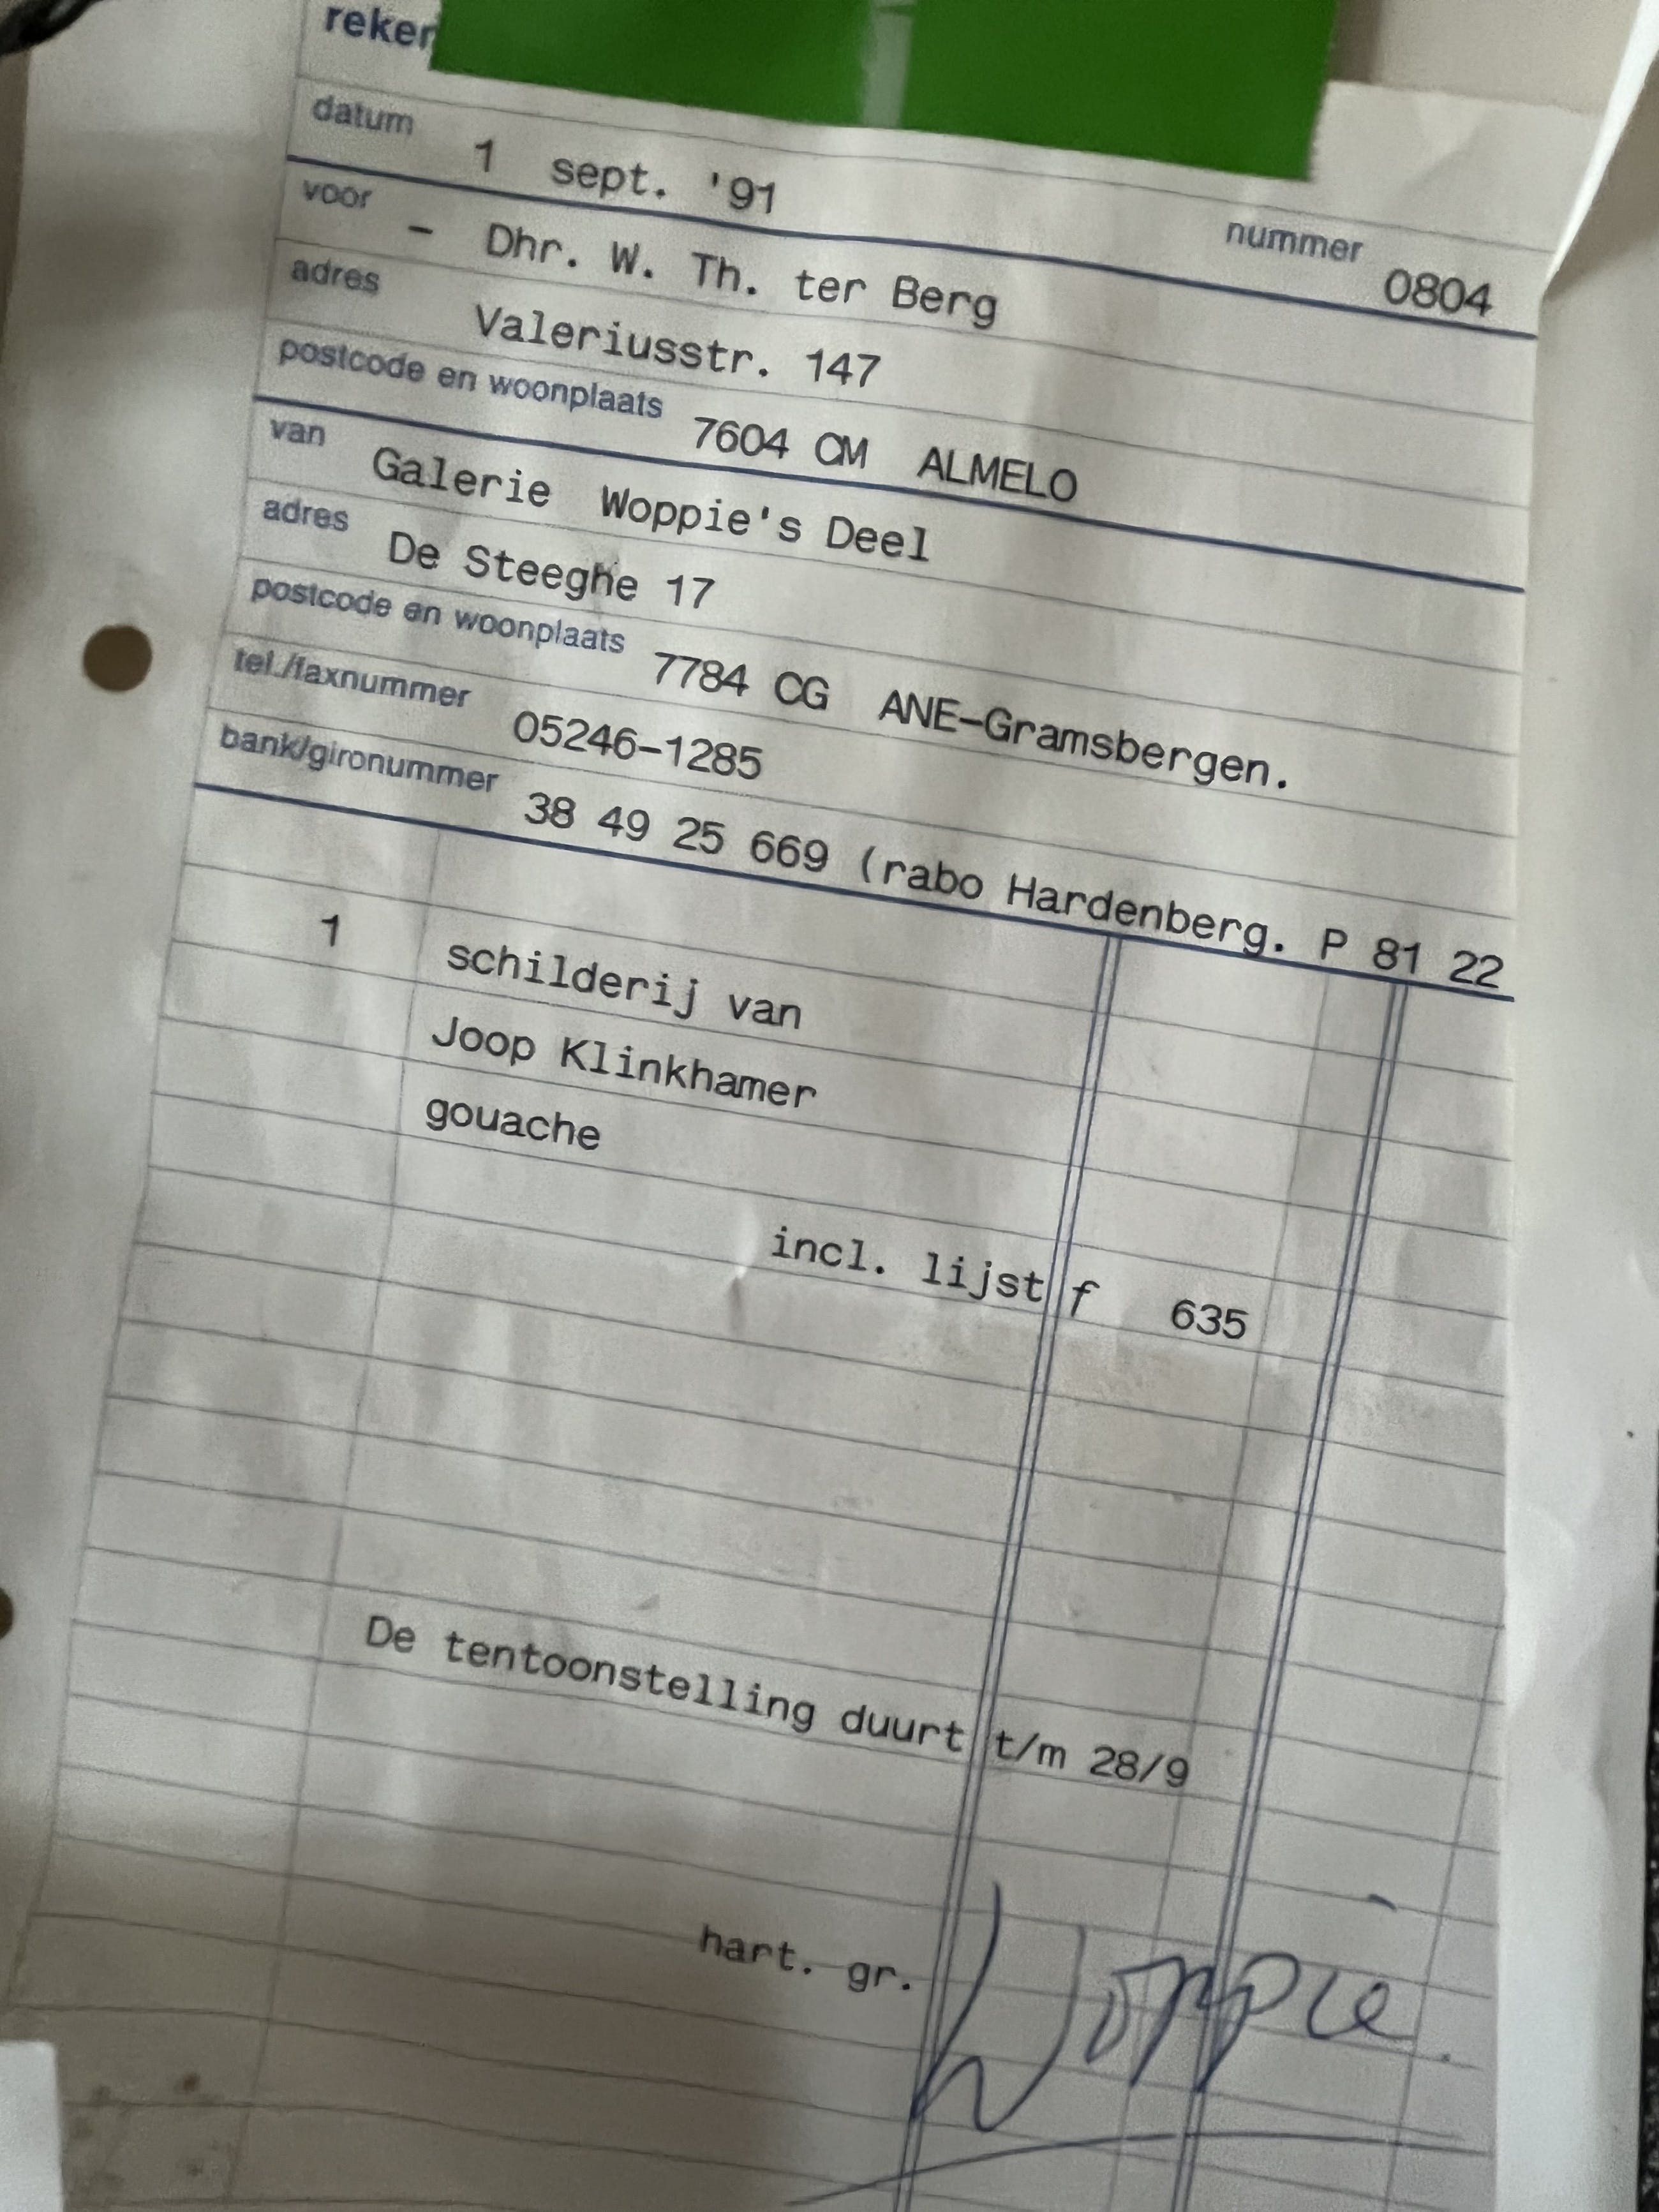 datum 1 sept. '91 nummer 0804
voor - Dhr. W. Th. ter Berg
adres Valeriusstr. 147
postcode en woonplaats 7604 CM ALMELO
van Galerie Woppie's Deel
adres De Steeghe 17
postcode en woonplaats 7784 CG ANE-Gramsbergen.
tel./faxnummer 05246-1285
bank/gironummer 38 49 25 669 (rabo Hardenberg. P 81 22
1 schilderij van
Joop Klinkhamer
gouache
incl. lijst f 635
De tentoonstelling duurt t/m 28/9
hart. gr. Woppie.